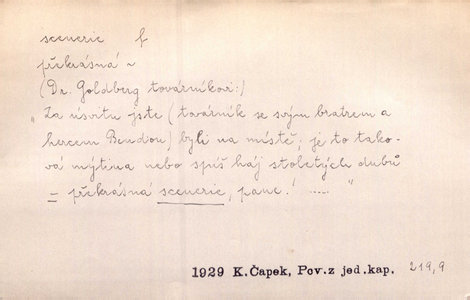 scenerie f
překrásná ~
(Dr. Goldberg továrníkovi:)
"Za úsvitu jste (továrník se svým bratrem a
hercem Bendou) byli na místě; je to tako-
vá mýtina nebo spíš háj stoletých dubů
= překrásná scenerie, pane! ..... "
1929 K.Čapek, Pov.z jed.kap. 219,9